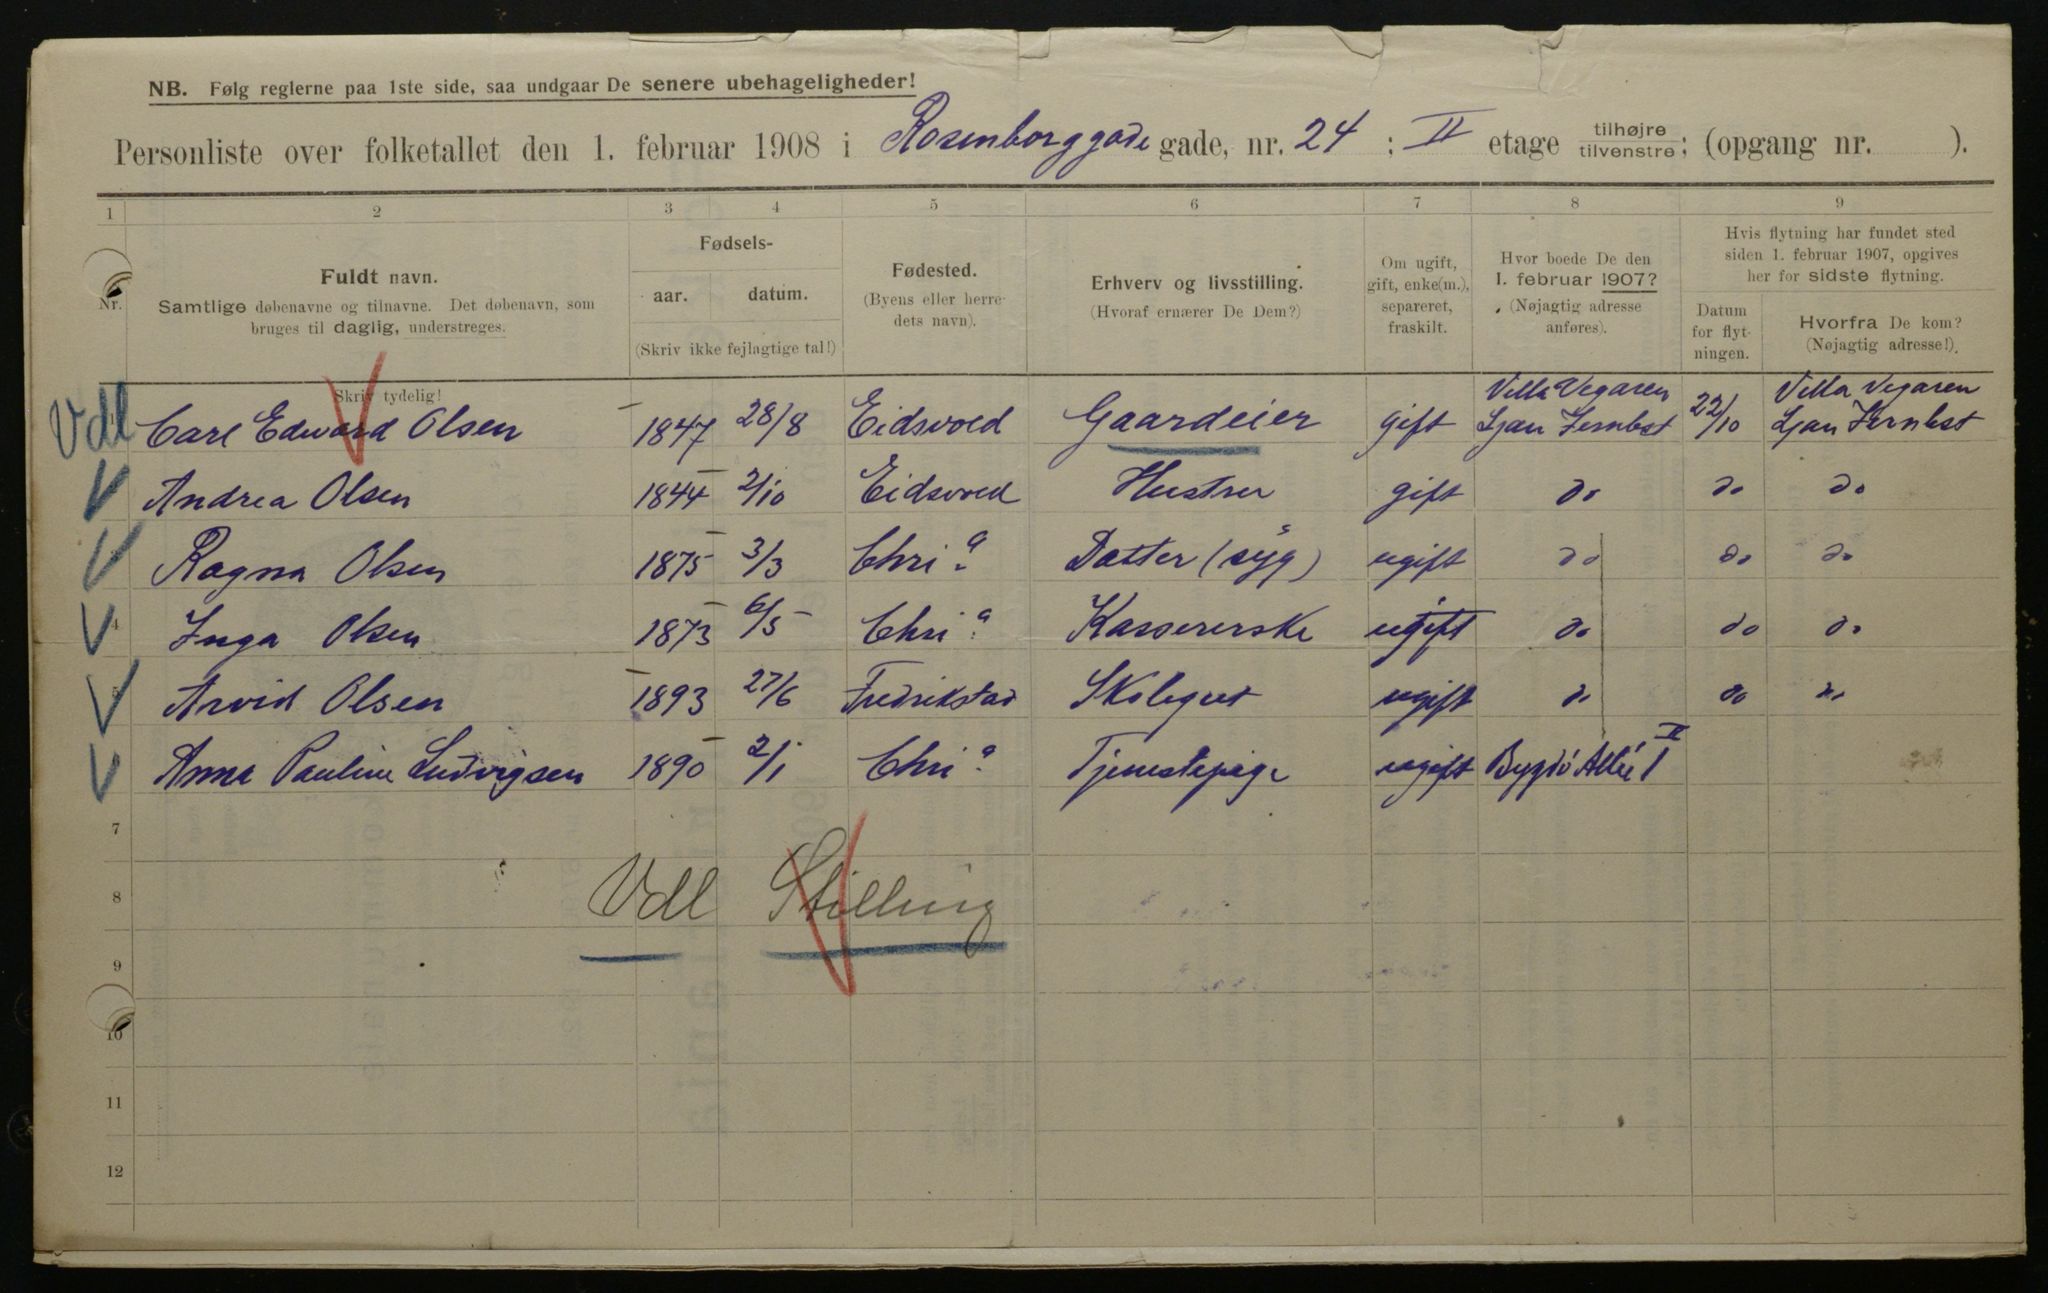 NB. Følg reglerne paa 1ste side, saa undgaar De senere ubehageligheder!
Personliste over folketallet den 1. februar 1908 i Rosenborggade gade, nr. 24 ; II etage tilhøjre tilvenstre; (opgang nr. ).
1 2 3 4 5 6 7 8 9
Nr.
Fuldt navn.
Samtlige døbenavne og tilnavne. Det døbenavn, som
bruges til daglig, understreges.
Skriv tydelig!
Fødsels-
aar. datum.
(Skriv ikke fejlagtige tal!)
Fødested.
(Byens eller herre-
dets navn).
Erhverv og livsstilling.
(Hvoraf ernærer De Dem?)
Om ugift,
gift, enke(m.),
separeret,
fraskilt.
Hvor boede De den
1. februar 1907?
(Nøjagtig adresse
anføres).
Hvis flytning har fundet sted
siden 1. februar 1907, opgives
her for sidste flytning.
Datum
for flyt-
ningen.
Hvorfra De kom?
(Nøjagtig adresse!).
Villa Vegaren Villa Vegaren
Vdl Carl Edward Olsen 1847 28/8 Eidsvold Gaardeier gift Ljan Jernbst 22/10 Ljan Jernbst
Andrea Olsen 1844 2/10 Eidsvold Hustru gift do do do
Ragna Olsen 1875 3/3 Chri.a Datter (syg) ugift do do do
4 Inga Olsen 1873 6/5 Chri.a Kassererske ugift do do do
5 Arvid Olsen 1893 27/6 Fredrikstad Skolegut ugift do do do
Anna Pauline Ludvigsen 1890 2/1 Chri.a Tjenestepige ugift Bygdö Allé 1 II
7
8 Vdl Stilling
9
10
11
12